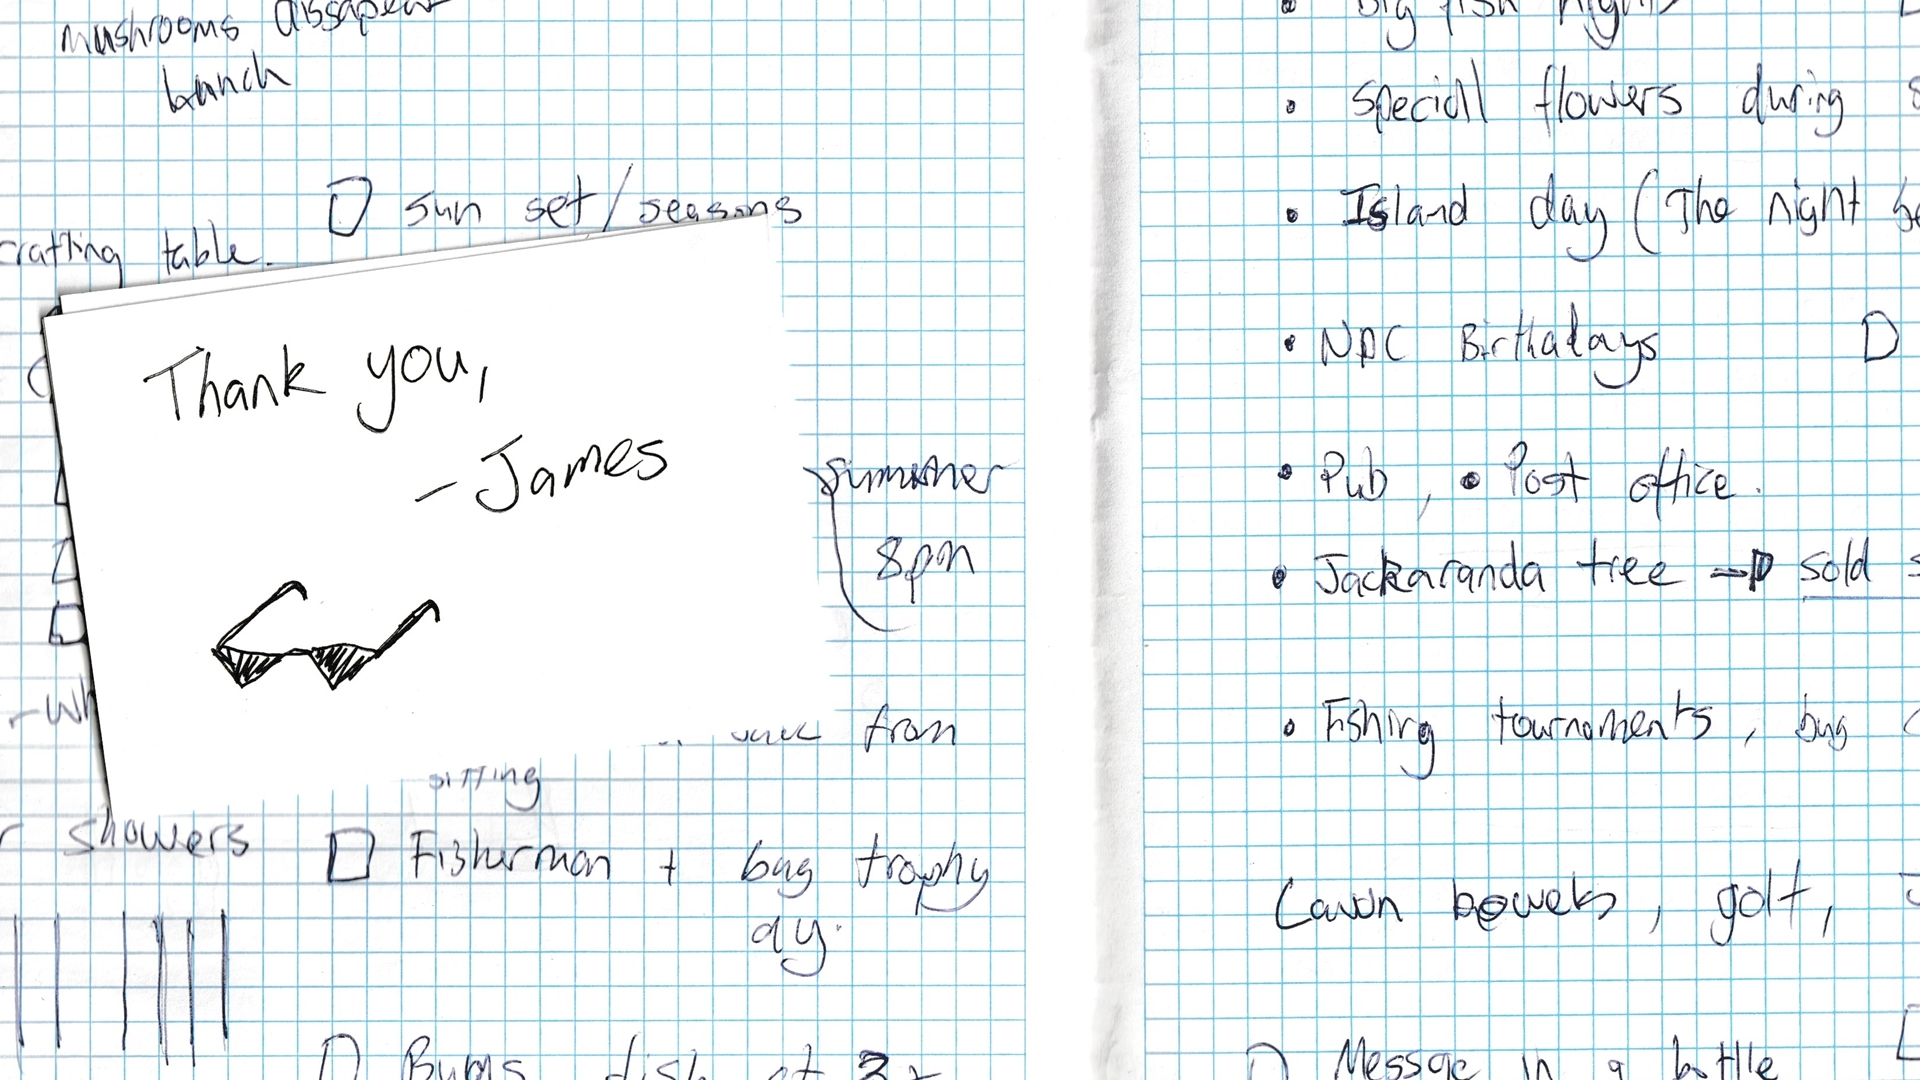 mushrooms dissapear
bunch
sun set/seasons
crafting table.
Thank you,
- James
summer
8pm
from
sitting
showers
Fisherman + bug trophy
day.
Bums fish at
Big fish nights
Speciall flowers during
Island day (The night
NPC Birthadays
Pub, • Post office.
Jackaranda tree → sold
Fishing tournaments, bug
Lawn bowels, golf,
Message in a bottle